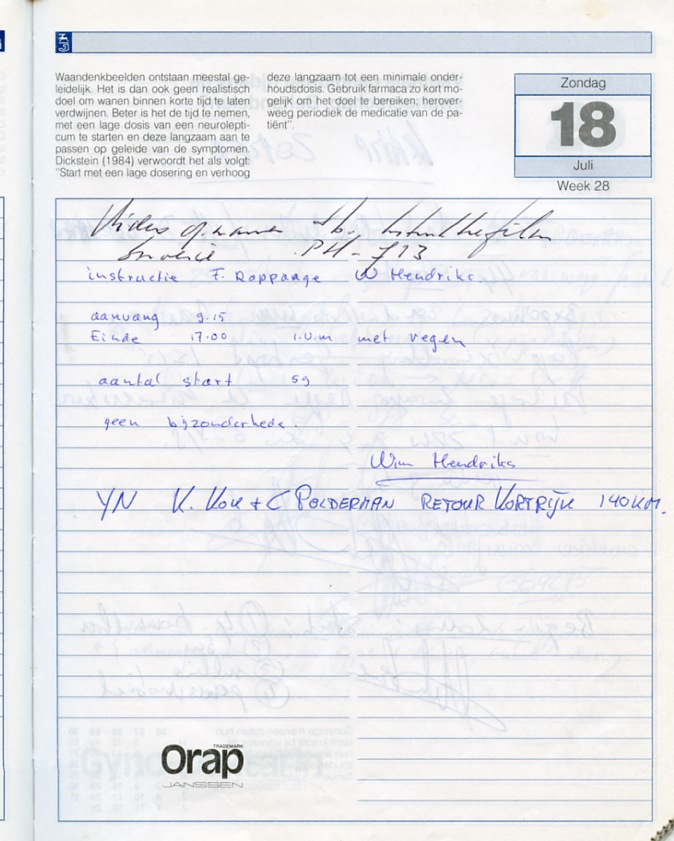 Waandenkbeelden ontstaan meestal ge-
leidelijk. Het is dan ook geen realistisch
doel om wanen binnen korte tijd te laten
verdwijnen. Beter is het de tijd te nemen,
met een lage dosis van een neurolepti-
cum te starten en deze langzaam aan te
passen op geleide van de symptomen.
Dickstein (1984) verwoordt het als volgt:
"Start met een lage dosering en verhoog
deze langzaam tot een minimale onder-
houdsdosis. Gebruik farmaca zo kort mo-
gelijk om het doel te bereiken; herover-
weeg periodiek de medicatie van de pa-
tiënt".
Zondag
18
Juli
Week 28
Video opname t.b.
PH-713
instructie F. Roppaage W Hendriks
aanvang 9.15
Einde 17.00 i.v.m met regen
aantal start 59
geen bijzonderhede.
Wim Hendriks
YN K. Kok + C POLDERMAN RETOUR KORTRIJK 140 KM.
TRADEMARK
Orap
JANSSEN